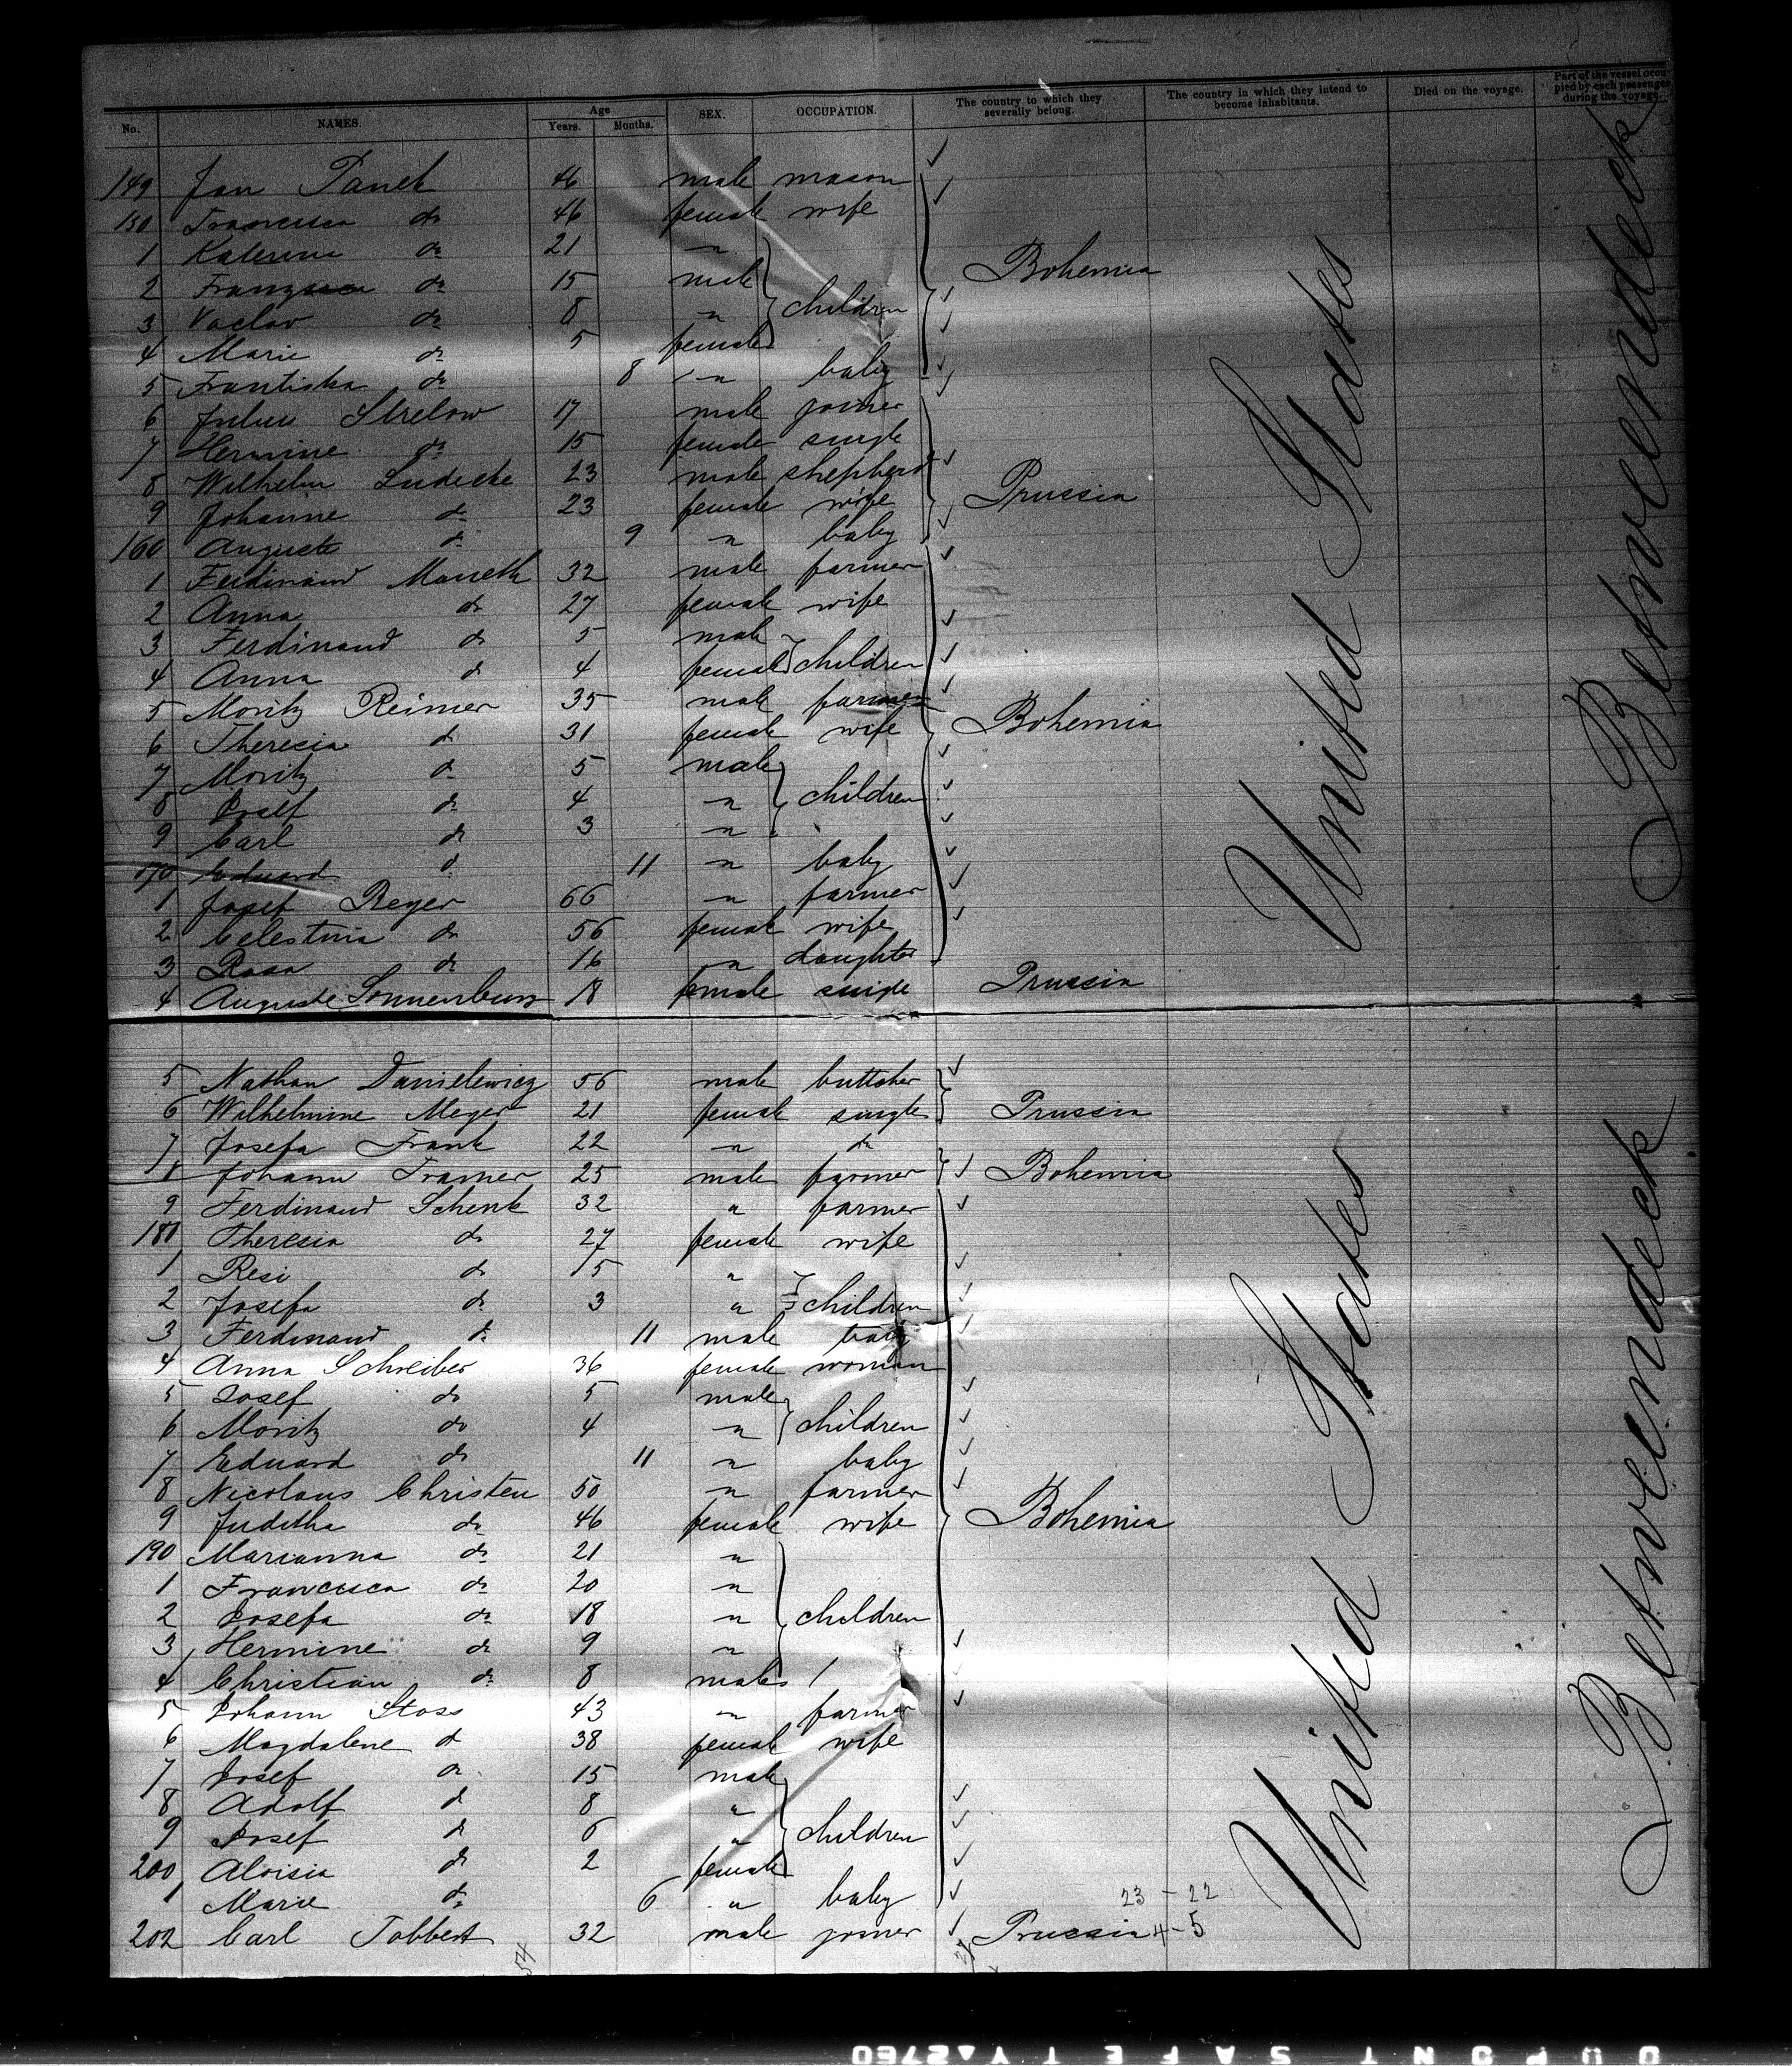 No. NAMES. Age Years. Months. SEX. OCCUPATION. The country to which they severally belong. The country in which they intend to become inhabitants. Died on the voyage. Part of the vessel occupied by each passenger during the voyage.
149 Jan Panek 46 male mason
150 Francisca do 46 female wife
1 Katerina do 21 "
2 Franz do 15 male
3 Vaclav do 8 " children Bohemia
4 Marie do 5 female
5 Frantiska do 8 " baby
6 Julius Strelow 17 male joiner
7 Hermine do 15 female single
8 Wilhelm Ludecke 23 male shepherd
9 Johanne do 23 female wife Prussia
160 Auguste do 9 " baby
1 Ferdinand 32 male farmer
2 Anna do 27 female wife
3 Ferdinand do 5 male
4 Anna do 4 female children
5 Moritz Reimer 35 male farmer
6 Theresia do 31 female wife Bohemia
7 Moritz do 5 male
8 Josef do 4 " children
9 Carl do 3 "
170 Eduard do 11 " baby
1 Josef Reyer 66 " farmer
2 Celestina do 56 female wife
3 Rosa do 16 " daughter
4 Auguste Sonnenburg 18 female single Prussia
5 Nathan Danielewicz 56 male buttcher
6 Wilhelmine Meyer 21 female single Prussia
7 Josefa Frank 22 " do
8 Johann Tramer 25 male farmer Bohemia
9 Ferdinand Schenk 32 " farmer
181 Theresia do 27 female wife
1 Resi do 15 "
2 Josefa do 3 " children
3 Ferdinand do 11 male baby
4 Anna Schreiber 36 female woman
5 Josef do 5 male
6 Moritz do 4 " children
7 Eduard do 11 " baby
8 Nicolaus Christen 50 " farmer
9 Juditha do 46 female wife Bohemia
190 Marianna do 21 "
1 Francisca do 20 "
2 Josefa do 18 " children
3 Hermine do 9 "
4 Christian do 8 male
5 Johann Stoss 43 " farmer
6 Magdalene do 38 female wife
7 Josef do 15 male
8 Adolf do 8 "
9 Josef do 6 " children
200 Aloisia do 2 female
1 Marie do 6 " baby 23 - 22
202 Carl Tobbert 32 male joiner Prussia 4-5
United States
Betweendeck
United States
Betweendeck
54
DUPONT SAFETY 2760